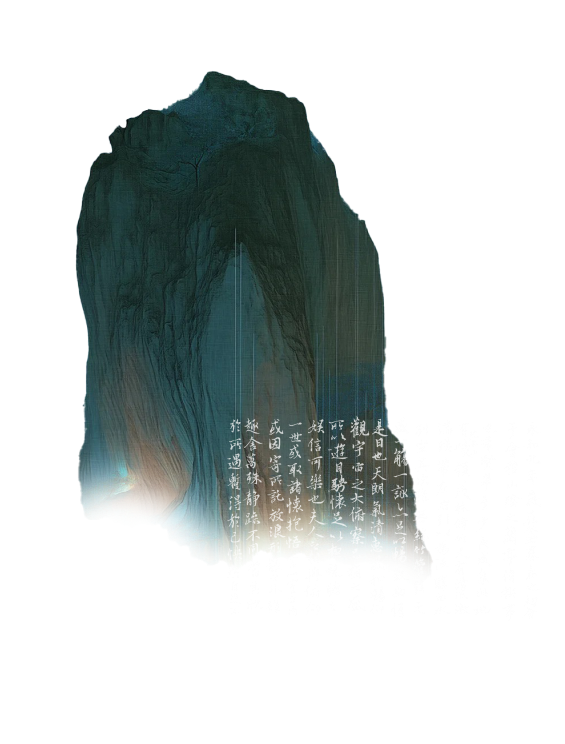 觴一詠亦足以
是日也天朗氣清
觀宇宙之大俯察
所以遊目騁懷足以
娛信可樂也夫人
一世或取諸懷抱悟
或因寄所託放浪
趣舍萬殊靜躁不
於所遇暫得於己